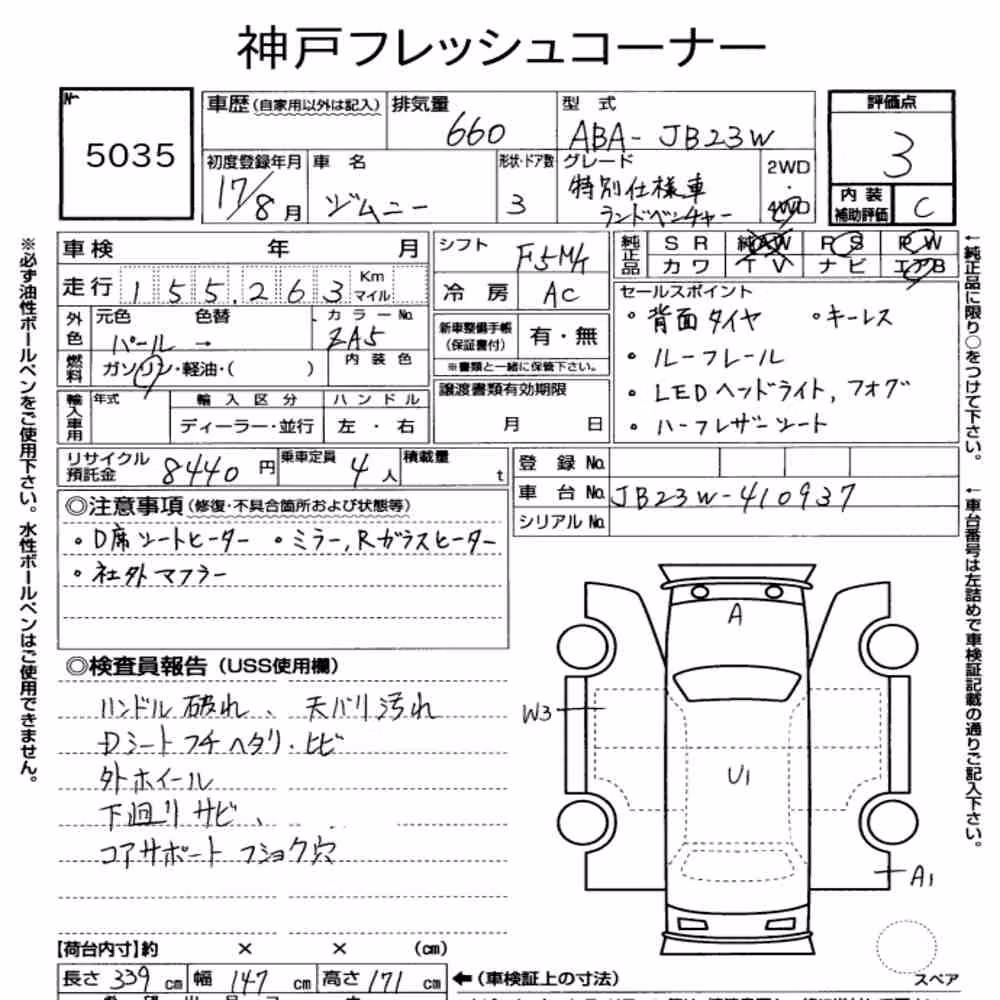 神戸フレッシュコーナー
№ 5035
車歴(自家用以外は記入) 排気量 660 型式 ABA-JB23W
評価点 3
初度登録年月 17/8月 車名 ジムニー 形状・ドア数 3 グレード 特別仕様車 ランドベンチャー 2WD・4WD
内装補助評価 C
車検 年 月
走行 155,263 Km マイル
シフト F5M/T
純正品 SR 純AW PS PW
カワ TV ナビ エアB
冷房 AC
外色 元色 パール → 色替 カラーNo. ZA5
燃料 ガソリン・軽油・( ) 内装色
新車整備手帳(保証書付) 有・無
※書類と一緒に保管下さい。
セールスポイント
・背面タイヤ ・キーレス
・ルーフレール
・LEDヘッドライト,フォグ
・ハーフレザーシート
輸入車用 年式 輸入区分 ハンドル
ディーラー・並行 左・右
譲渡書類有効期限
月 日
リサイクル預託金 8440円 乗車定員 4人 積載量 t
登録No.
車台No. JB23W-410937
シリアルNo.
◎注意事項(修復・不具合箇所および状態等)
・D席シートヒーター ・ミラー,Rガラスヒーター
・社外マフラー
◎検査員報告(USS使用欄)
ハンドル破れ、天バリ汚れ
Dシートフチヘタリ・ヒビ
外ホイール
下廻りサビ、
コアサポートフショク穴
A
W3
U1
A1
スペア
【荷台内寸】約 × × (cm)
長さ 339 cm 幅 147 cm 高さ 171 cm ←(車検証上の寸法)
※必ず油性ボールペンをご使用下さい。水性ボールペンはご使用できません。
←純正品に限り○をつけて下さい。
←車台番号は左詰めで車検証記載の通りご記入下さい。